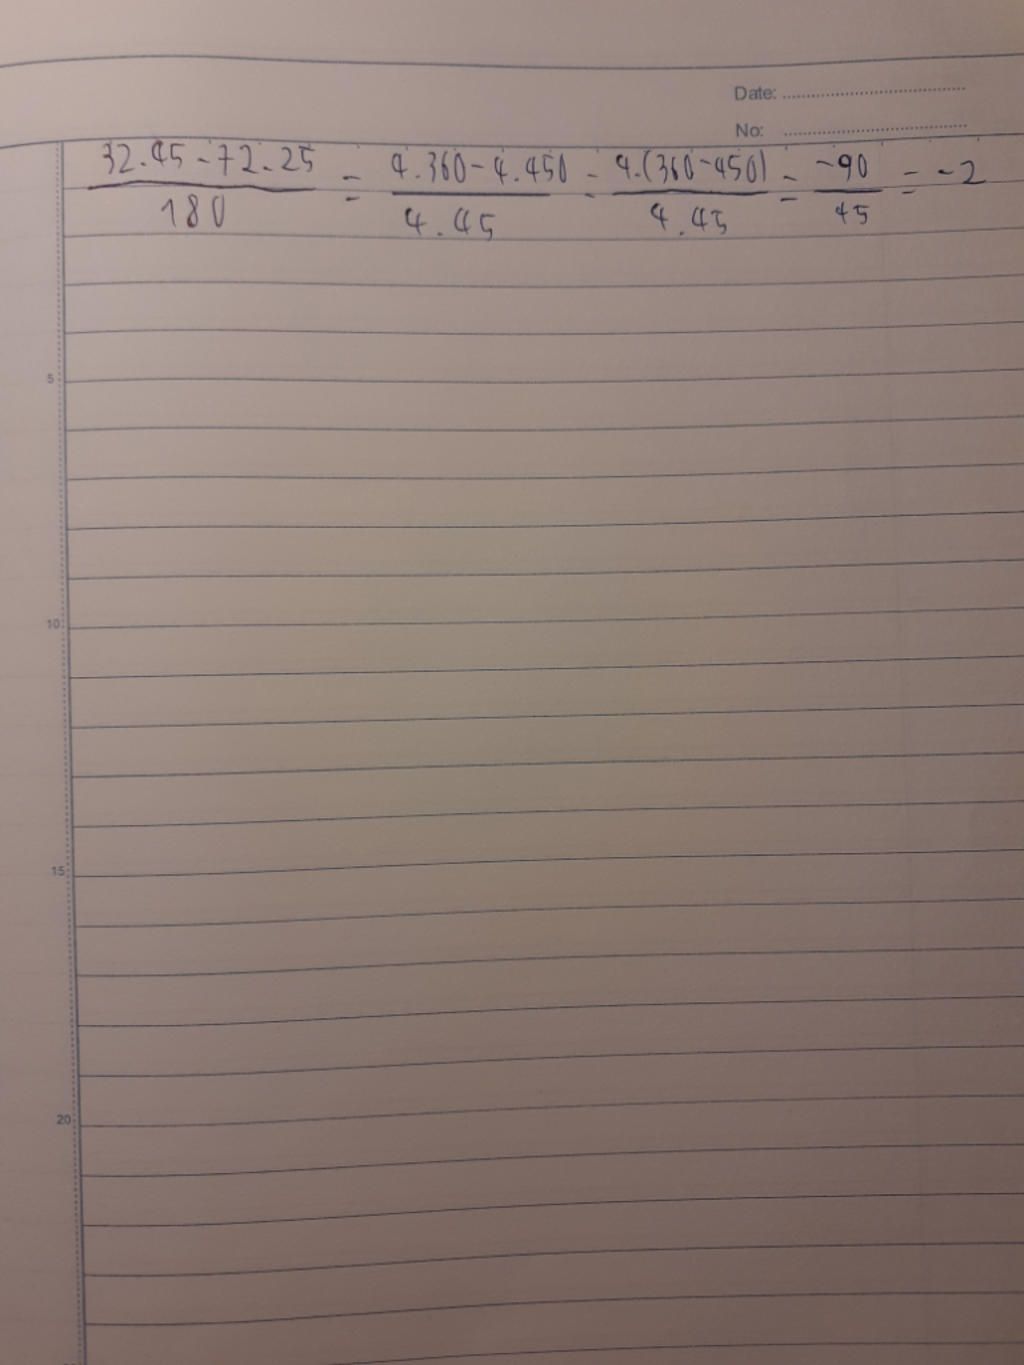 Date: ........................................
No: ........................................
32.45-72.25/180 = 4.360-4.450/4.45 = 4.(360-450)/4.45 = -90/45 = -2
5
10
15
20